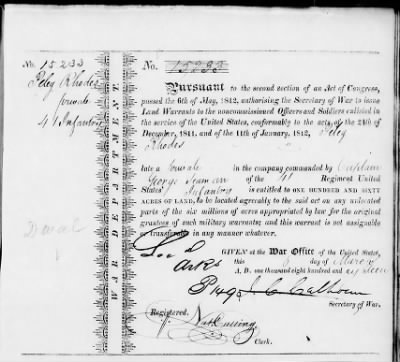 No. 15233
Peleg Rhodes
private
4th Infantry
No. 15233
WAR DEPARTMENT.
Pursuant to the second section of an Act of Congress,
passed the 6th of May, 1812, authorising the Secretary of War to issue
Land Warrants to the noncommissioned Officers and Soldiers enlisted in
the service of the United States, conformably to the acts of the 24th of
December, 1811, and of the 11th of January, 1812, Peleg
Rhodes
late a private in the company commanded by Captain
George of the 4th Regiment United
States' Infantry is entitled to ONE HUNDRED AND SIXTY
ACRES OF LAND, to be located agreeably to the said act on any unlocated
parts of the six millions of acres appropriated by law for the original
grantees of such military warrants; and this warrant is not assignable
or transferable in any manner whatever.
GIVEN at the War Office of the United States,
this day of March
A. D. one thousand eight hundred and
J. C. Calhoun
Secretary of War.
Registered.
Clerk.